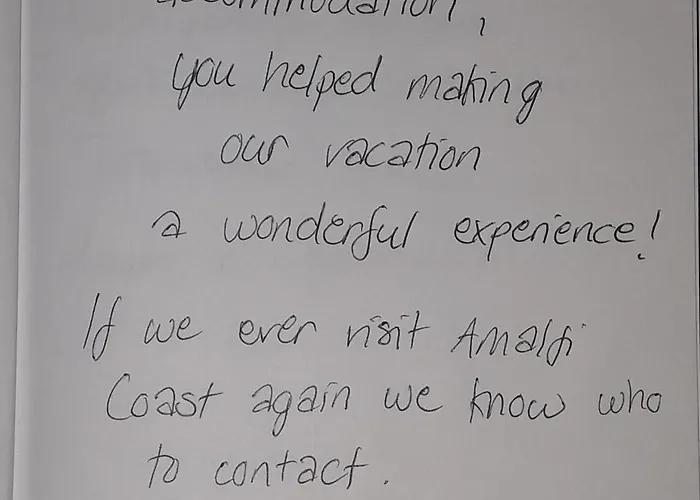 accommodation,
you helped making
our vacation
a wonderful experience!
If we ever visit Amalfi
Coast again we know who
to contact.